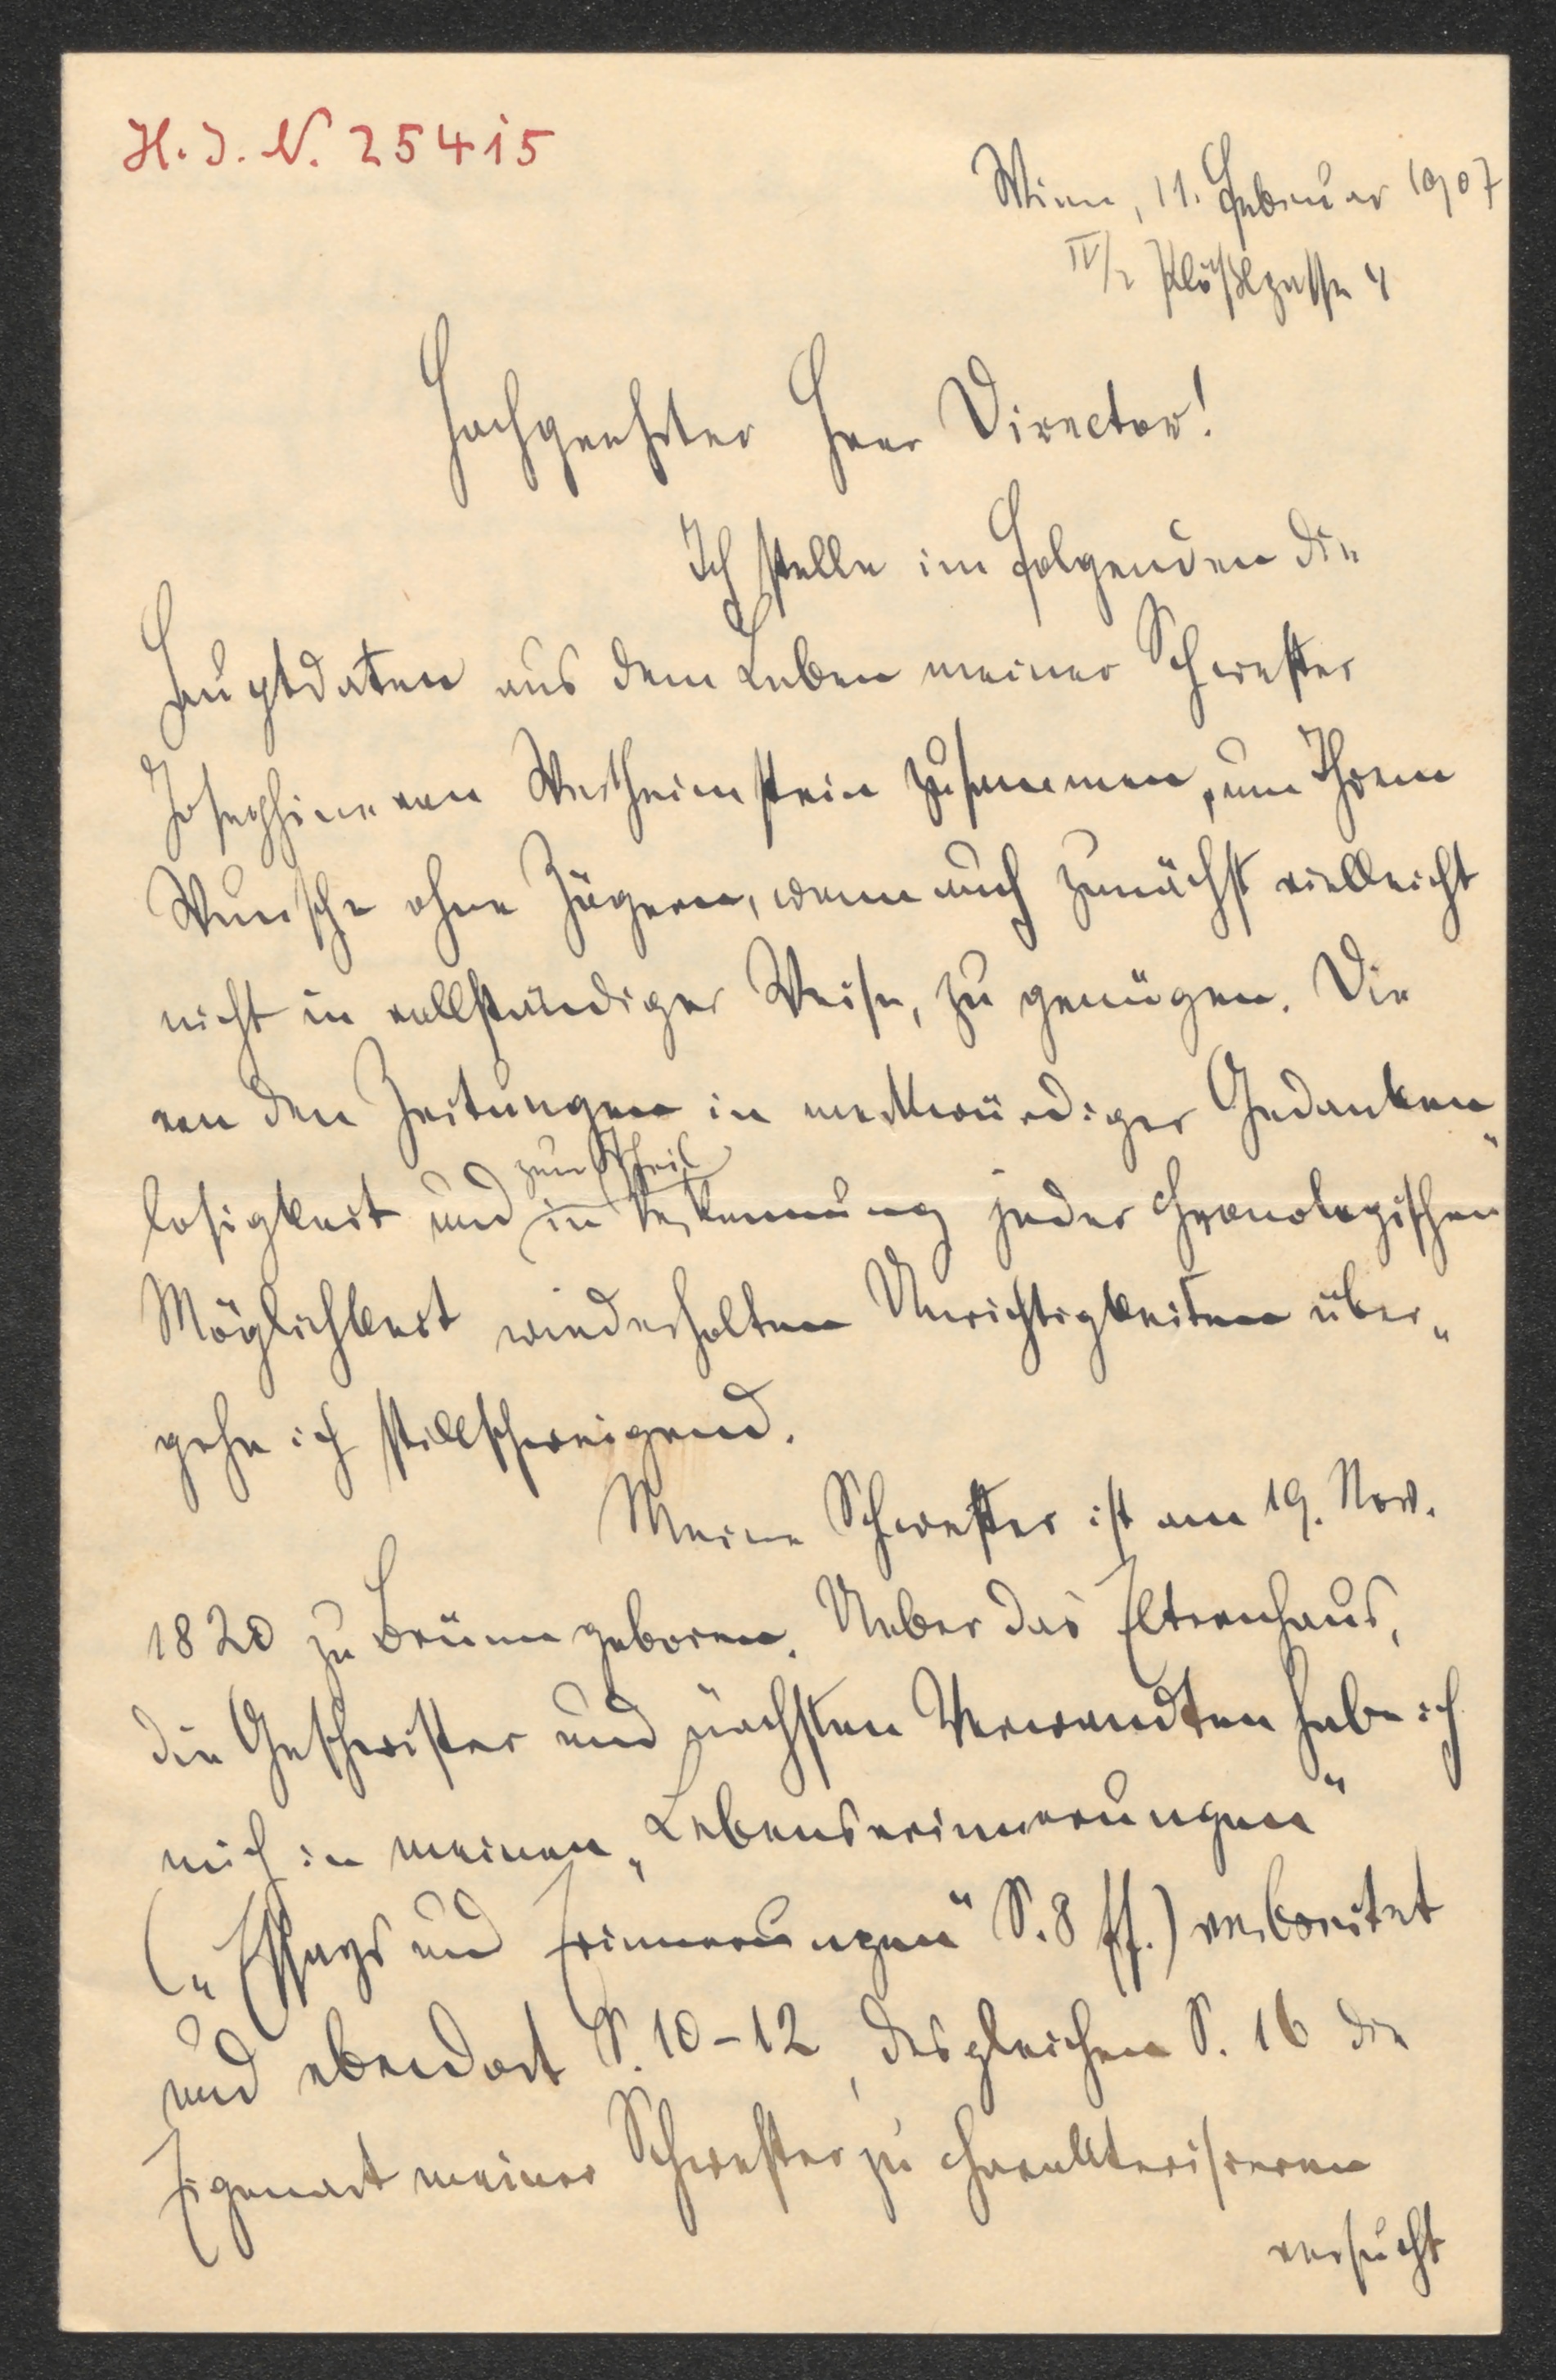 H. I. N. 25415
Wien, 11. Februar 1907
IV/2 Plößlgasse 4
Hochgeehrter Herr Director!
Ich stelle im Folgenden die
Hauptdaten aus dem Leben meiner Schwester
Josephine von Wertheimstein zusammen, um Ihrem
Wunsche ohne Zögern, wenn auch zunächst vielleicht
nicht in vollständiger Weise, zu genügen. Die
von den Zeitungen in merkwürdiger Gedanken„
zum Theil
losigkeit und in Verkennung jeder chronologischen
Möglichkeit wiederholten Unrichtigkeiten über„
gehe ich stillschweigend.
Meine Schwester ist am 19. Nov.
1820 zu Brünn geboren. Ueber das Elternhaus,
die Geschwister und nächsten Verwandten habe ich
mich in meinen „Lebenserinnerungen“
(„Essays und Erinnerungen“ S. 8 ff.) verbreitet
und ebendort S. 10-12, desgleichen S. 16 die
Eigenart meiner Schwester zu charakterisieren
versucht